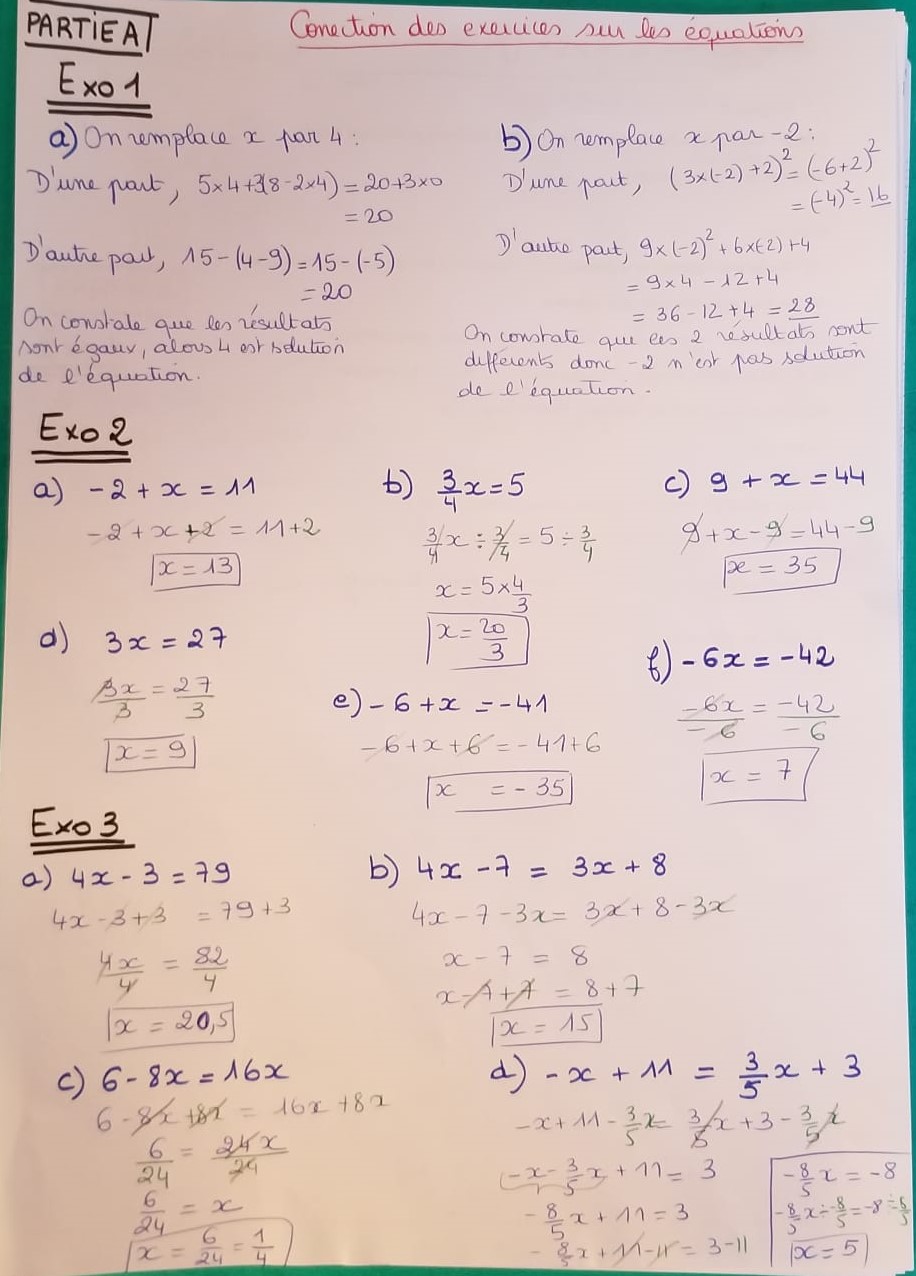 PARTIE A
Correction des exercices sur les équations
Exo 1
a) On remplace x par 4 :
D'une part, 5×4+3(8-2×4) = 20+3×0
= 20
D'autre part, 15-(4-9) = 15-(-5)
= 20
On constate que les résultats
sont égaux, alors 4 est solution
de l'équation.
b) On remplace x par -2 :
D'une part, (3×(-2)+2)² = (-6+2)²
= (-4)² = 16
D'autre part, 9×(-2)² + 6×(-2)+4
= 9×4 - 12+4
= 36 - 12 + 4 = 28
On constate que ces 2 résultats sont
différents donc -2 n'est pas solution
de l'équation.
Exo 2
a) -2 + x = 11
-2 + x + 2 = 11+2
x = 13
b) 3/4 x = 5
3/4 x ÷ 3/4 = 5 ÷ 3/4
x = 5 × 4/3
x = 20/3
c) 9 + x = 44
9 + x - 9 = 44 - 9
x = 35
d) 3x = 27
3x/3 = 27/3
x = 9
e) -6 + x = -41
-6 + x + 6 = -41+6
x = -35
f) -6x = -42
-6x/-6 = -42/-6
x = 7
Exo 3
a) 4x - 3 = 79
4x - 3 + 3 = 79 + 3
4x/4 = 82/4
x = 20,5
b) 4x - 7 = 3x + 8
4x - 7 - 3x = 3x + 8 - 3x
x - 7 = 8
x - 7 + 7 = 8 + 7
x = 15
c) 6 - 8x = 16x
6 - 8x + 8x = 16x + 8x
6/24 = 24x/24
6/24 = x
x = 6/24 = 1/4
d) -x + 11 = 3/5 x + 3
-x + 11 - 3/5 x = 3/5 x + 3 - 3/5 x
-x - 3/5 x + 11 = 3
-8/5 x + 11 = 3
-8/5 x + 11 - 11 = 3 - 11
-8/5 x = -8
-8/5 x ÷ -8/5 = -8 ÷ -8/5
x = 5